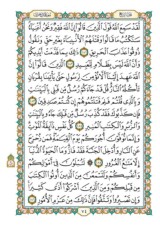 لَّقَدْ سَمِعَ اللَّهُ قَوْلَ الَّذِينَ قَالُوا إِنَّ اللَّهَ فَقِيرٌ وَنَحْنُ أَغْنِيَاءُ
سَنَكْتُبُ مَا قَالُوا وَقَتْلَهُمُ الْأَنبِيَاءَ بِغَيْرِ حَقٍّ وَنَقُولُ
ذُوقُوا عَذَابَ الْحَرِيقِ ١٨١ ذَٰلِكَ بِمَا قَدَّمَتْ أَيْدِيكُمْ
وَأَنَّ اللَّهَ لَيْسَ بِظَلَّامٍ لِّلْعَبِيدِ ١٨٢ الَّذِينَ قَالُوا إِنَّ
اللَّهَ عَهِدَ إِلَيْنَا أَلَّا نُؤْمِنَ لِرَسُولٍ حَتَّىٰ يَأْتِيَنَا بِقُرْبَانٍ
تَأْكُلُهُ النَّارُ قُلْ قَدْ جَاءَكُمْ رُسُلٌ مِّن قَبْلِي بِالْبَيِّنَاتِ
وَبِالَّذِي قُلْتُمْ فَلِمَ قَتَلْتُمُوهُمْ إِن كُنتُمْ صَادِقِينَ ١٨٣
فَإِن كَذَّبُوكَ فَقَدْ كُذِّبَ رُسُلٌ مِّن قَبْلِكَ جَاءُوا بِالْبَيِّنَاتِ
وَالزُّبُرِ وَالْكِتَابِ الْمُنِيرِ ١٨٤ كُلُّ نَفْسٍ ذَائِقَةُ الْمَوْتِ
وَإِنَّمَا تُوَفَّوْنَ أُجُورَكُمْ يَوْمَ الْقِيَامَةِ فَمَن زُحْزِحَ
عَنِ النَّارِ وَأُدْخِلَ الْجَنَّةَ فَقَدْ فَازَ وَمَا الْحَيَاةُ الدُّنْيَا
إِلَّا مَتَاعُ الْغُرُورِ ١٨٥ لَتُبْلَوُنَّ فِي أَمْوَالِكُمْ
وَأَنفُسِكُمْ وَلَتَسْمَعُنَّ مِنَ الَّذِينَ أُوتُوا الْكِتَابَ
مِن قَبْلِكُمْ وَمِنَ الَّذِينَ أَشْرَكُوا أَذًى كَثِيرًا
وَإِن تَصْبِرُوا وَتَتَّقُوا فَإِنَّ ذَٰلِكَ مِنْ عَزْمِ الْأُمُورِ ١٨٦
٧٤